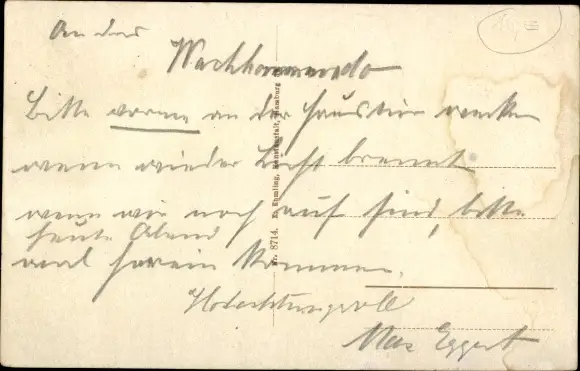 An das
Wachkommando
Bitte vorne an der Haustür wecken
wenn wieder Licht brennt
wenn wir noch auf sind, bitte
heute Abend
mal herein kommen.
Hochachtungsvoll
Max Eggert
Nr. 8714. Kunstanstalt, Hamburg